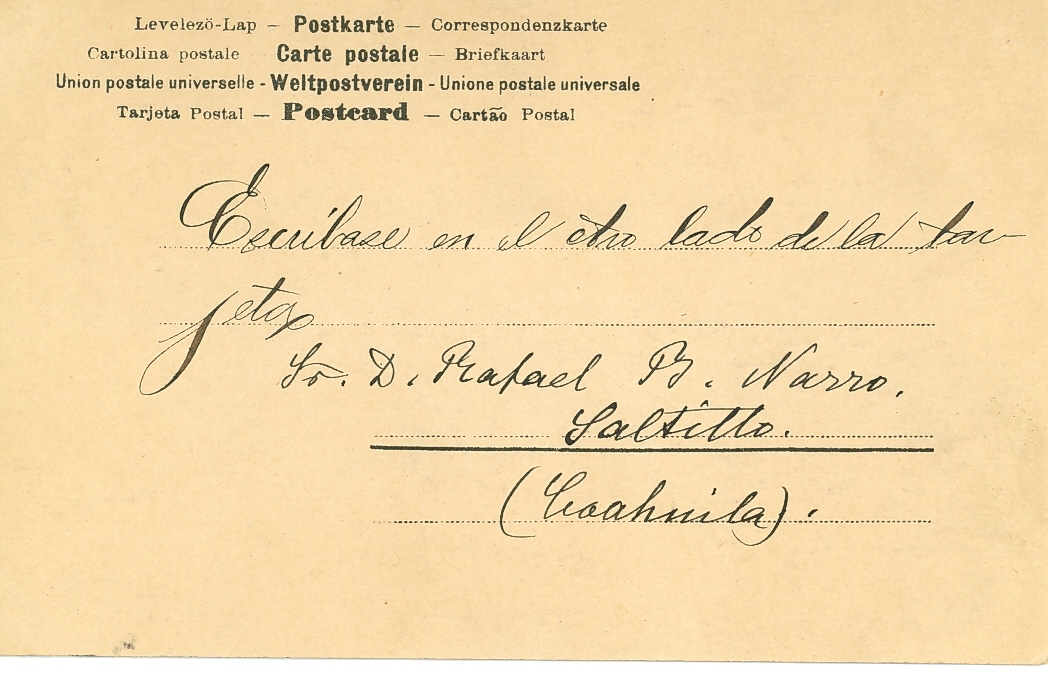 Levelező-Lap — Postkarte — Correspondenzkarte
Cartolina postale Carte postale — Briefkaart
Union postale universelle - Weltpostverein - Unione postale universale
Tarjeta Postal — Postcard — Cartão Postal
Escríbase en el otro lado de la tar-
jeta
Sr. D. Rafael B. Narro.
Saltillo.
(Coahuila).